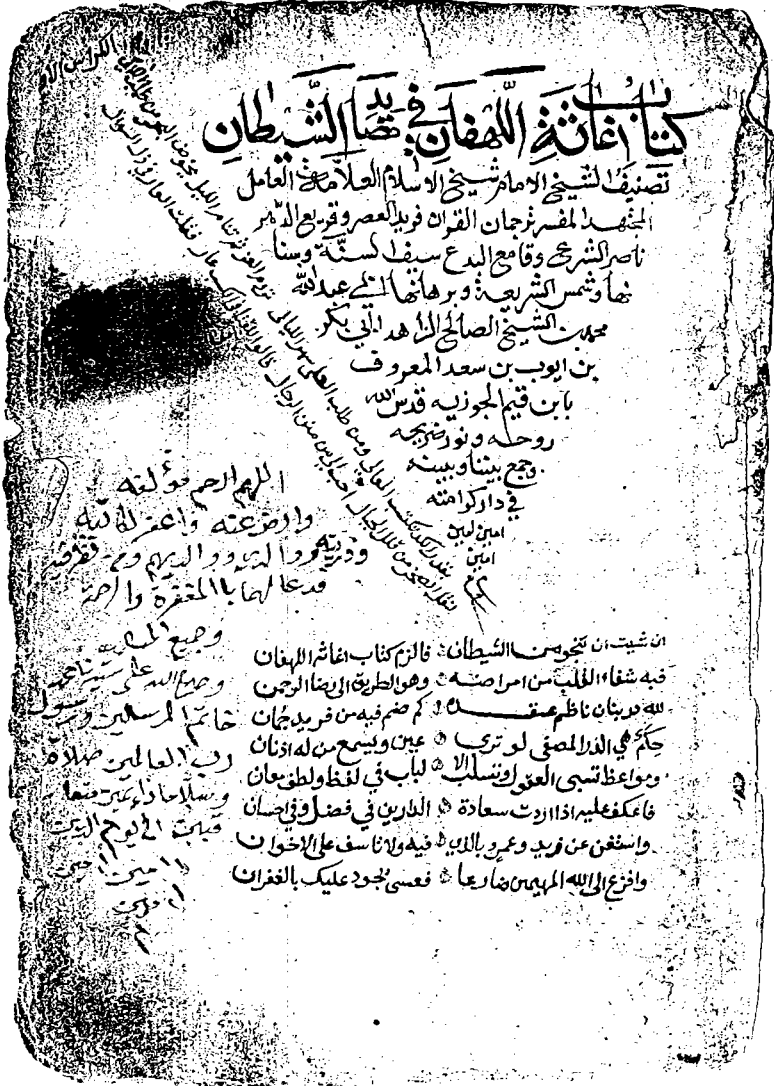 كتاب اغاثة اللهفان في مصايد الشيطان
تصنيف الشيخ الامام شيخ الاسلام العلامة العامل
المجتهد المفسر ترجمان القران فريد العصر وقريع الدهر
ناصر الشرع وقامع البدع سيف السنة وسنا
نها وشمس الشريعة وبرهانها ابي عبدالله
محمد بن الشيخ الصالح الزاهد ابي بكر
بن ايوب بن سعد المعروف
بابن قيم الجوزيه قدس الله
روحه ونور ضريحه
وجمع بيننا وبينه
في دار كرامته
امين امين
امين
بقدر الكد تكتسب المعالي ومن طلب العلى سهر الليالي
تروم العز ثم تنام الليل يخوض البحر من طلب اللالي
لنقل الصخر من قلل الجبال احب الي من منن الرجال
اللهم ارحم مؤلفه
وارض عنه واغفر لكاتبه
وذريته ووالديه ووالديهم ومن
ودعا لهما بالمغفرة والرحمة
وجميع
وصلى الله على سيدنا محمد
خاتم المرسلين ورسول
رب العالمين صلاة
وسلاما دائمين
الى يوم الدين
امين امين
امين
ان شيت ان تنجو من الشيطان فالزم كتاب اغاثه اللهفان
فيه شفاء القلب من امراضه وهو الطريق الى رضا الرحمن
لله در بنان ناظم عقده كم ضم فيه من فريد جمان
حكم هي الدر المصفى لو ترى عين ويسمع من له اذنان
ومواعظ تسبي العقول وتسلب الا لباب في لفظ ولطف معان
فاعكف عليه اذا اردت سعادة الدارين في فضل وفي احسان
واستغن عن زيد وعمرو بالذي فيه ولا تاسف على الاخوان
وافزع الى الله المهيمن ضارعا فعسى يجود عليك بالغفران